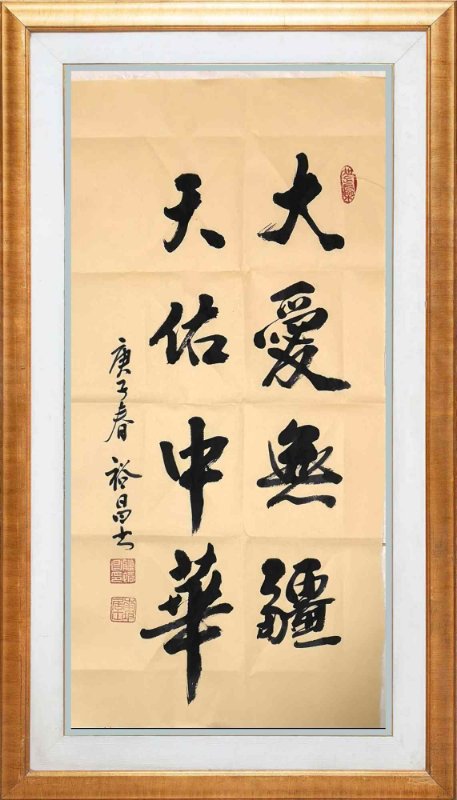 大愛無疆
天佑中華
庚子春 裕昌书